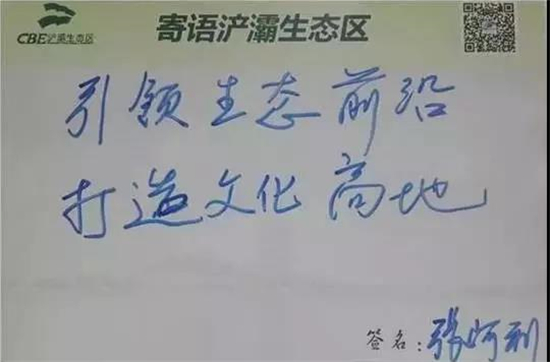 CBE浐灞生态区
寄语浐灞生态区
引领生态前沿
打造文化高地
签名:张